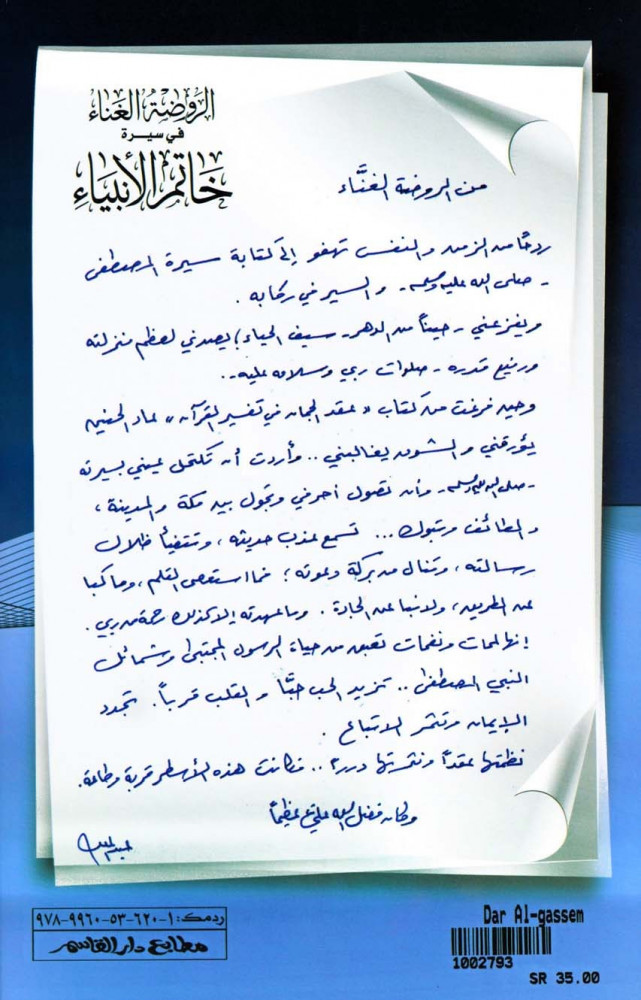 الروضة الغناء
في سيرة
خاتم الأنبياء
من الروضة الغنَّاء
ردحًا من الزمن والنفس تهفو إلى كتابة سيرة المصطفى
- صلى الله عليه وسلم - والسير في ركابه .
ويفزعني - حينًا من الدهر - سيف الحياء؛ يصدني لعظم منزلته
ورفيع قدره - صلوات ربي وسلامه عليه - .
وحين فرغت من كتاب « عقد الجمان في تفسير القرآن » عاد الحنين
يؤرقني والشوق يغالبني .. وأردت أن تكتحل عيني بسيرته
- صلى الله عليه وسلم - وأن تصول أحرفي وتجول بين مكة والمدينة ،
والطائف وتبوك ... تسمع عذب حديثه ، وتتفيأ ظلال
رسالته ، وتنال من بركة دعوته ؛ فما استعصى القلم ، وما كبا
عن الطريق ، ولا نبا عن الجادة . وما عهدته إلا كذلك رحمة من ربي .
إنها لمحات ونفحات تعبق من حياة الرسول المجتبى وشمائل
النبي المصطفى .. تزيد الحب حبًّا والقلب قربًا . تجدد
الإيمان وتثمر الاتباع .
نظمتها عقدًا ونثرتها دررًا .. فكانت هذه الأسطر قربة وطاعة .
وكان فضل الله عليّ عظيمًا
ردمك: ١-٦٢٠-٥٣-٩٩٦٠-٩٧٨
مطابع دار القاسم
Dar Al-gassem
1002793
SR 35.00